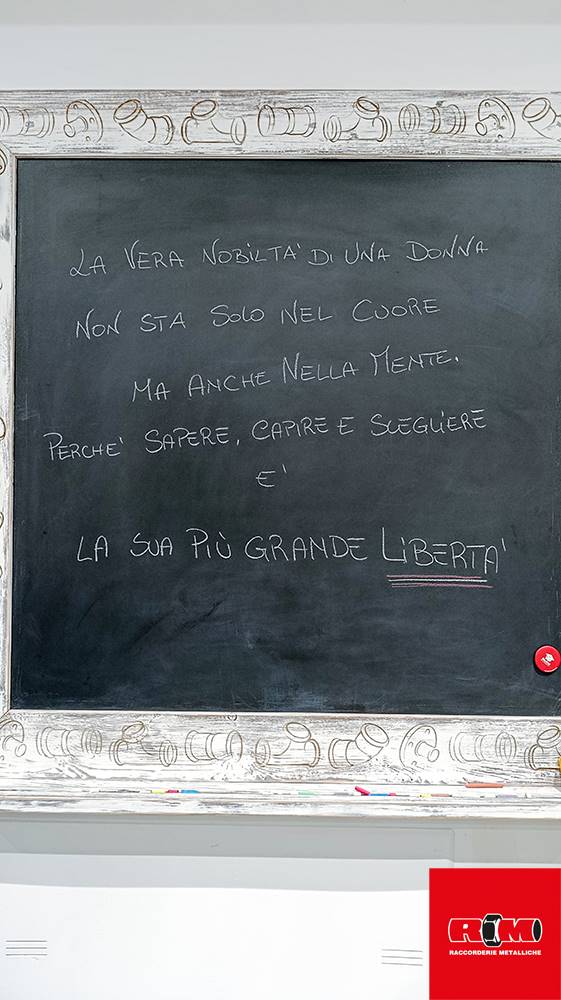 LA VERA NOBILTA' DI UNA DONNA
NON STA SOLO NEL CUORE
MA ANCHE NELLA MENTE.
PERCHE' SAPERE, CAPIRE E SCEGLIERE
E'
LA SUA PIÙ GRANDE LIBERTA'
RM
RACCORDERIE METALLICHE